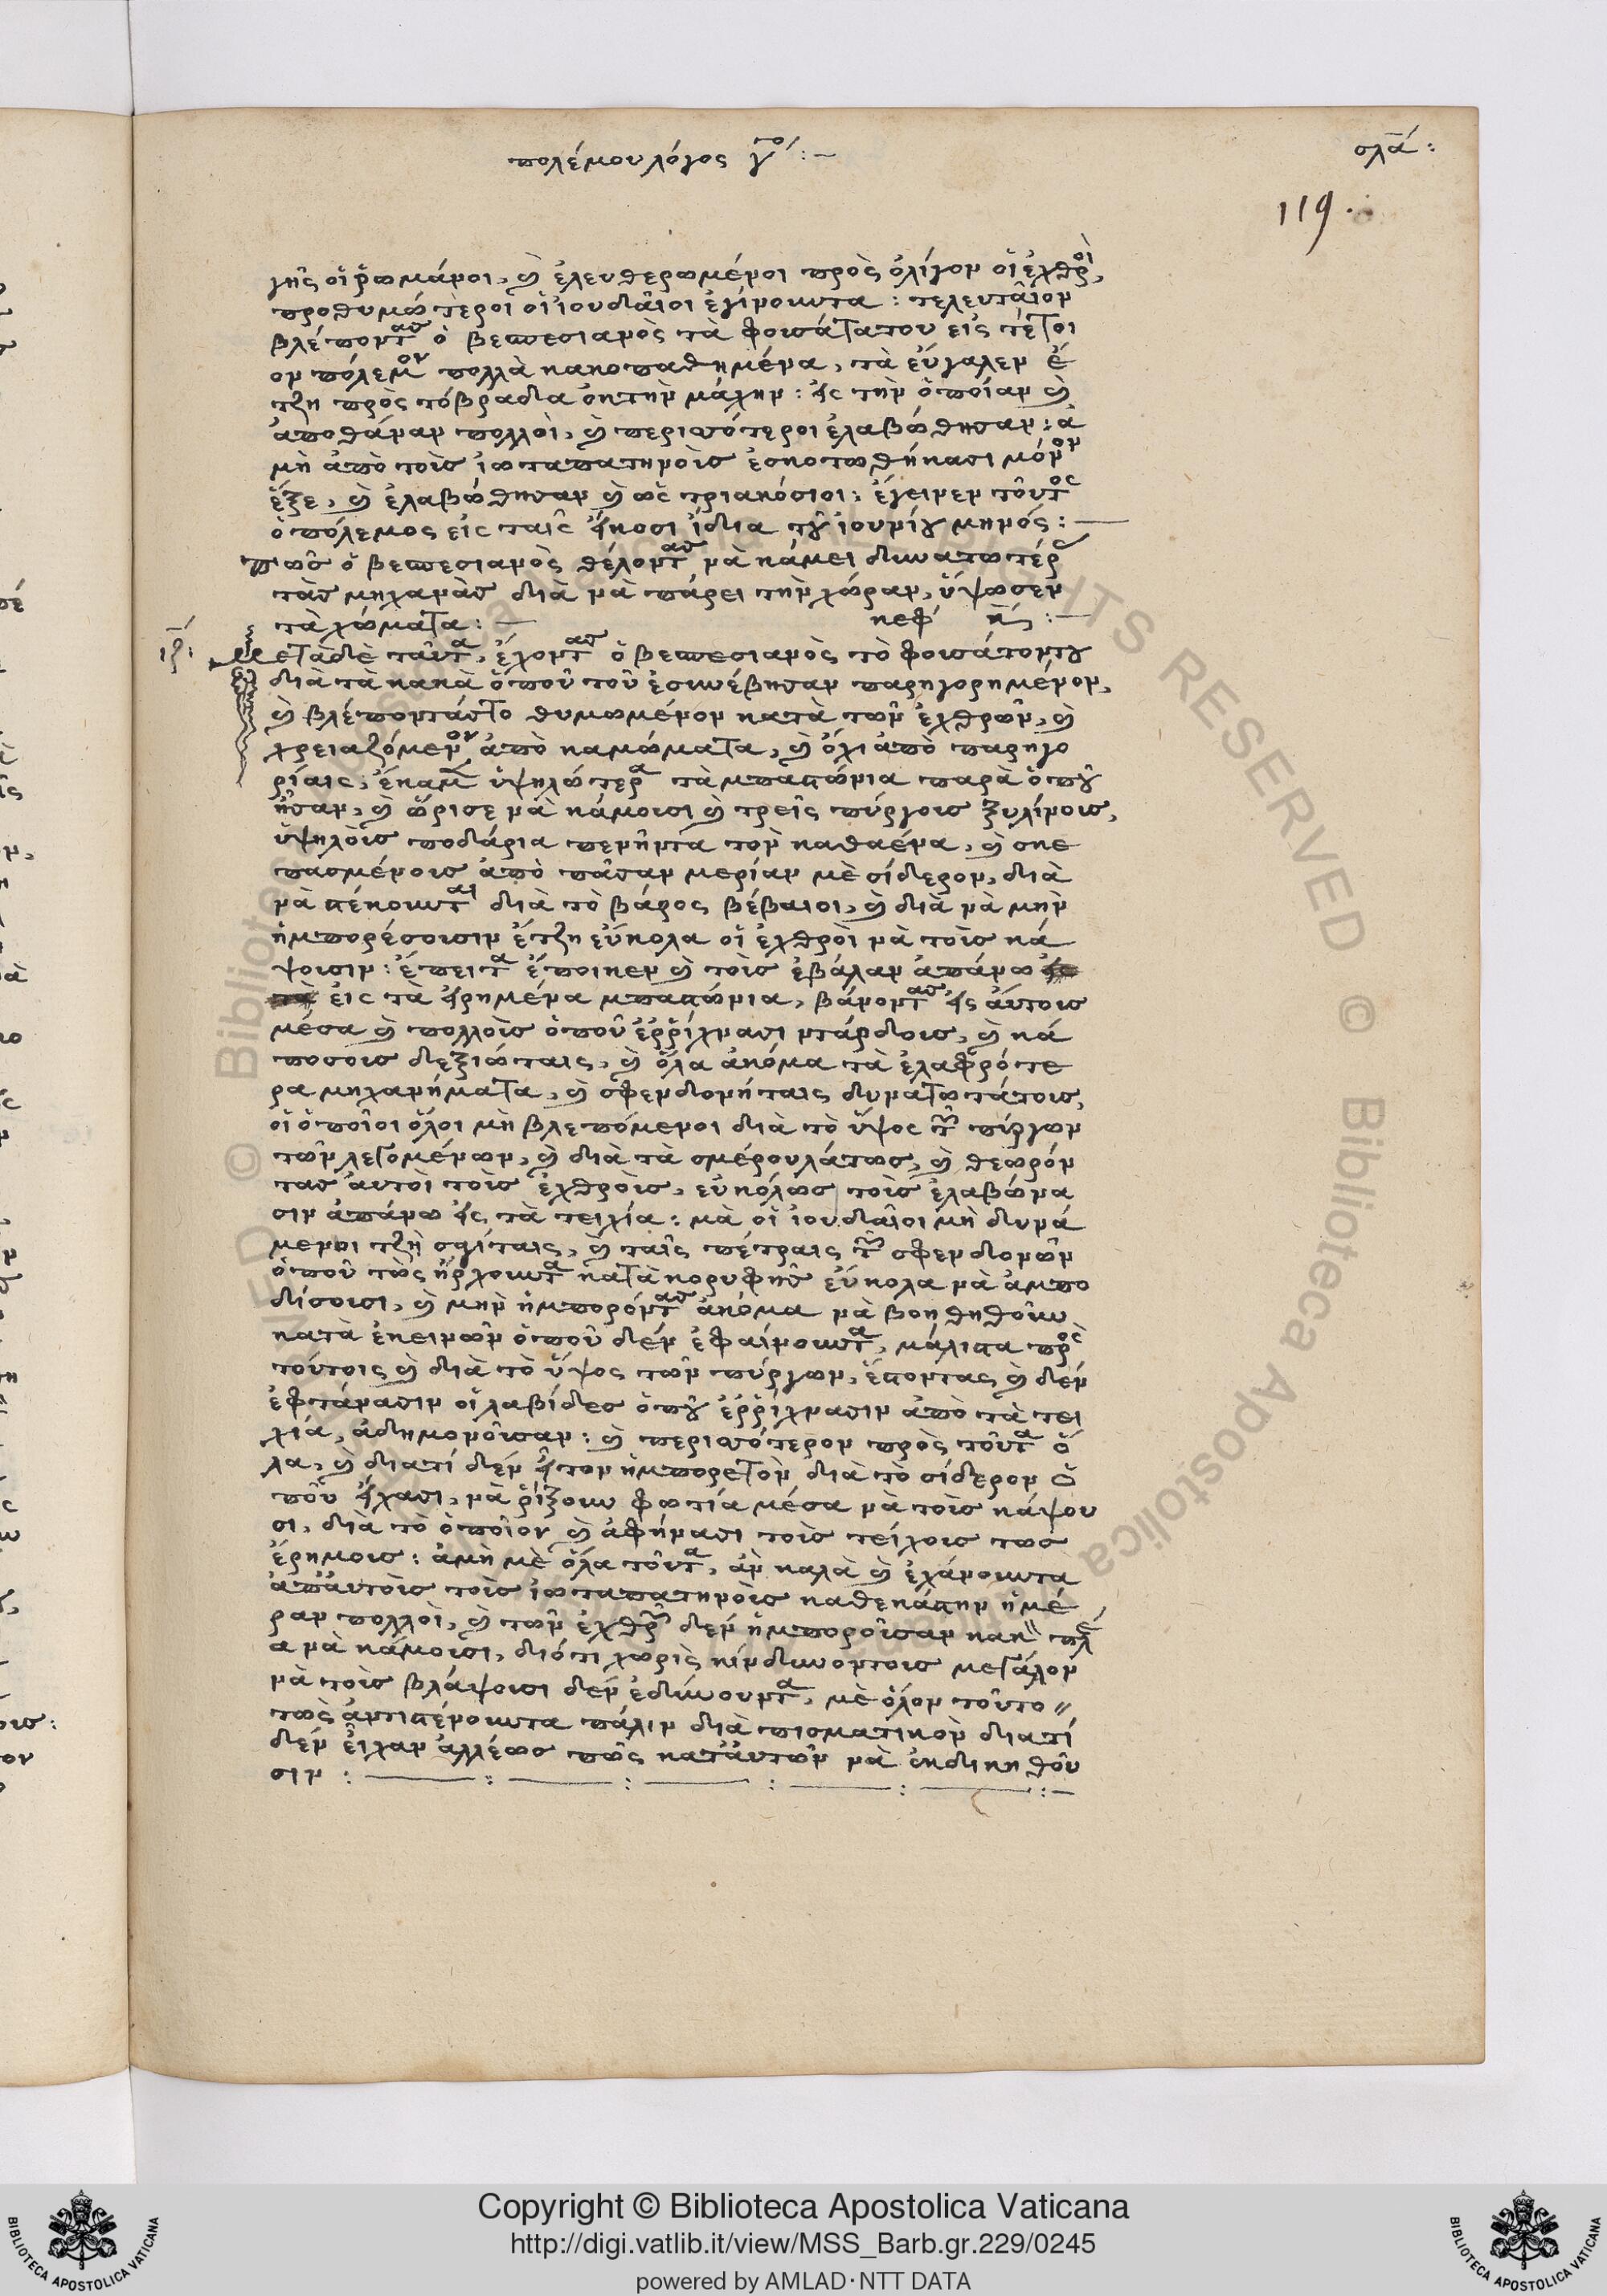 πολέμου λόγος γ´ το : –
σλα´ :
119.
γῆς οἱ ῥωμάνοι, καὶ ἐλευθερωμένοι πρὸς ὀλίγον οἱ ἐχθροὶ,
προθυμώτεροι οἱ ἰουδαῖοι ἐγίνουντα : τελευταῖον
βλέποντας ὁ βεσπεσιανὸς τὰ φουσάτα του εἰς τέτοι
ον πόλεμον πολλὰ κακοπαθημένα, τὰ εὔγαλεν ἔ
τζη πρὸς τὸ βραδία ἐκ τὴν μάχην : εἰς τὴν ὁποίαν καὶ
ἀποθάναν πολλοὶ, καὶ περισσότεροι ἐλαβώθησαν : ἀ
μὴ ἀπὸ τοὺς ἰωταπατηνοὺς ἐσκοτωθήκασι μόνον
ἕξε, καὶ ἐλαβώθησαν καὶ ὡς τριακόσιοι : ἔγεινεν τοῦτος
ὁ πόλεμος εἰς ταῖς εἴκοσι ἴδια τοῦ ἰουνίου μηνός : –
πῶς ὁ βεσπεσιανὸς θέλοντας νὰ κάμει δυνατωτέρες
τὰς μηχανὰς διὰ νὰ πάρει τὴν χώραν, ὕψωσεν
τὰ χώματα : – κεφ´ κ´ : –
ιζ :
Μετὰ δὲ ταῦτα, ἔχοντας ὁ βεσπεσιανὸς τὸ φουσάτον του
διὰ τὰ κακὰ ὁποῦ τοῦ ἐσυνέβησαν παρηγορημένον,
καὶ βλέποντάς το θυμωμένον κατὰ τῶν ἐχθρῶν, καὶ
χρειαζόμενον ἀπὸ καμώματα, καὶ ὄχι ἀπὸ παρηγο
ρίαις, ἔκαμεν ὑψηλώτερα τὰ μπαστιώνια παρὰ ὁποῦ
ἦσαν, καὶ ὥρισε νὰ κάμουσι καὶ τρεῖς πύργους ξυλίνους,
ὑψηλοὺς ποδάρια πενῆντα τὸν καθαένα, καὶ σκε
πασμένους ἀπὸ πᾶσαν μερίαν μὲ σίδερον, διὰ
νὰ στέκουνται διὰ τὸ βάρος βέβαιοι, καὶ διὰ νὰ μὴν
ἠμπορέσουσιν ἔτζη εὔκολα οἱ ἐχθροὶ νὰ τοὺς κά
ψουσιν : ἔπειτα ἔποικεν καὶ τοὺς ἐβάλαν ἀπάνω
εἰς τὰ εἰρημένα μπαστιώνια, βάνοντας εἰς αὐτοὺς
μέσα καὶ πολλοὺς ὁποῦ ἐῤῥίχνασι ντάρδους, καὶ κά
ποσους δεξιώταις, καὶ ὅλα ἀκόμα τὰ ἐλαφρότε
ρα μηχανήματα, καὶ σφενδονήταις δυνατωτάτους,
οἱ ὁποῖοι ὅλοι μὴ βλεπόμενοι διὰ τὸ ὕψος τῶν πύργων
τῶν λεγομένων, καὶ διὰ τὰ σμέρουλάτως, καὶ θεωρόν
τας αὐτοὶ τοὺς ἐχθροὺς, εὐκόλως τοὺς ἐλαβώνα
σιν ἀπάνω εἰς τὰ τειχία : μὰ οἱ ἰουδαῖοι μὴ δυνά
μενοι τζὴ σαγίταις, καὶ ταῖς πέτραις τῶν σφενδονῶν
ὁποῦ τῶς ἤρχουντα κατὰ κορυφῆς εὔκολα νὰ ἀμπο
δίσουσι, καὶ μὴν ἠμπορόντας ἀκόμα νὰ βοηθηθοῦν
κατὰ ἐκεινῶν ὁποῦ δὲν ἐφαίνουντα, μάλιστα πρὸς
τούτοις καὶ διὰ τὸ ὕψος τῶν πύργων, ἔστοντας καὶ δὲν
ἐφτάνασιν οἱ λαβίδες ὁποῦ ἐῤῥίχνασιν ἀπὸ τὰ τει
χιά, ἀδημονοῦσαν : καὶ περισσότερον πρὸς τοῦτα ὅ
λα, καὶ διατί δὲν εἶτον ἠμπορετὸν διὰ τὸ σίδερον ὁ
ποῦ εἴχασι, νὰ ῥίξουν φωτία μέσα νὰ τοὺς κάψου
σι, διὰ τὸ ὁποῖον καὶ ἀφήνασι τοὺς τείχους τως
ἔρημους : ἀμὴ μὲ ὅλα τοῦτα, ἂν καλὰ καὶ ἐχάνουντα
ἀπ᾽ αὐτοὺς τοὺς ἰωταπατηνοὺς καθεκάστην ἡμέ
ραν πολλοὶ, καὶ τῶν ἐχθρῶν δὲν ἠμποροῦσαν κακὴ πλέ
α νὰ κάμουσι, διότι χωρὶς κίνδυνον τους μεγάλον
νὰ τοὺς βλάψουσι δὲν ἐδύνουντα, μὲ ὅλον τοῦτο //
τῶς ἀντιστένουντα πάλιν διὰ πισματικὸν διατί
δὲν εἶχαν ἀλλέως πῶς κατ᾽ αὐτῶν νὰ ἐκδικηθοῦ
σιν : – : – : – : – : – : –
Copyright © Biblioteca Apostolica Vaticana
http://digi.vatlib.it/view/MSS_Barb.gr.229/0245
powered by AMLAD·NTT DATA
BIBLIOTECA APOSTOLICA VATICANA
BIBLIOTECA APOSTOLICA VATICANA